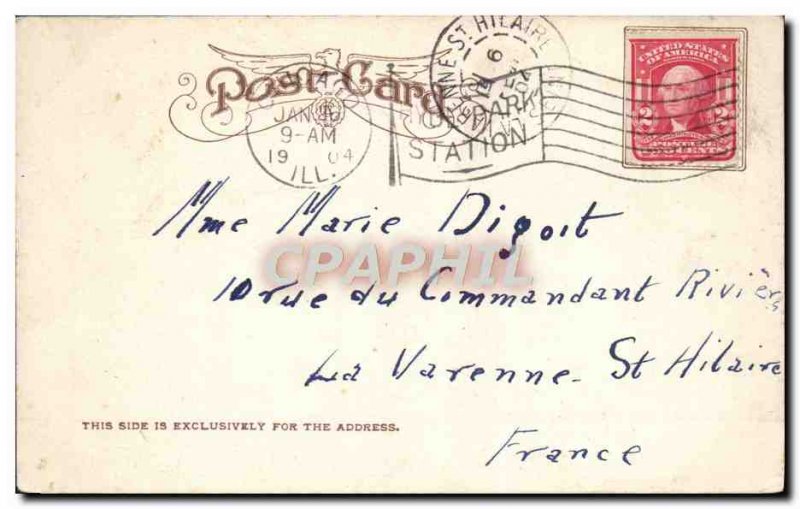 Post Card
JAN 30
9-AM
19 04
ILL.
PARK
STATION
ST HILAIRE
6
UNITED STATES
OF AMERICA
2 2
Mme Marie Digoit
10 rue du Commandant Rivière
La Varenne - St Hilaire
France
CPAPHIL
THIS SIDE IS EXCLUSIVELY FOR THE ADDRESS.